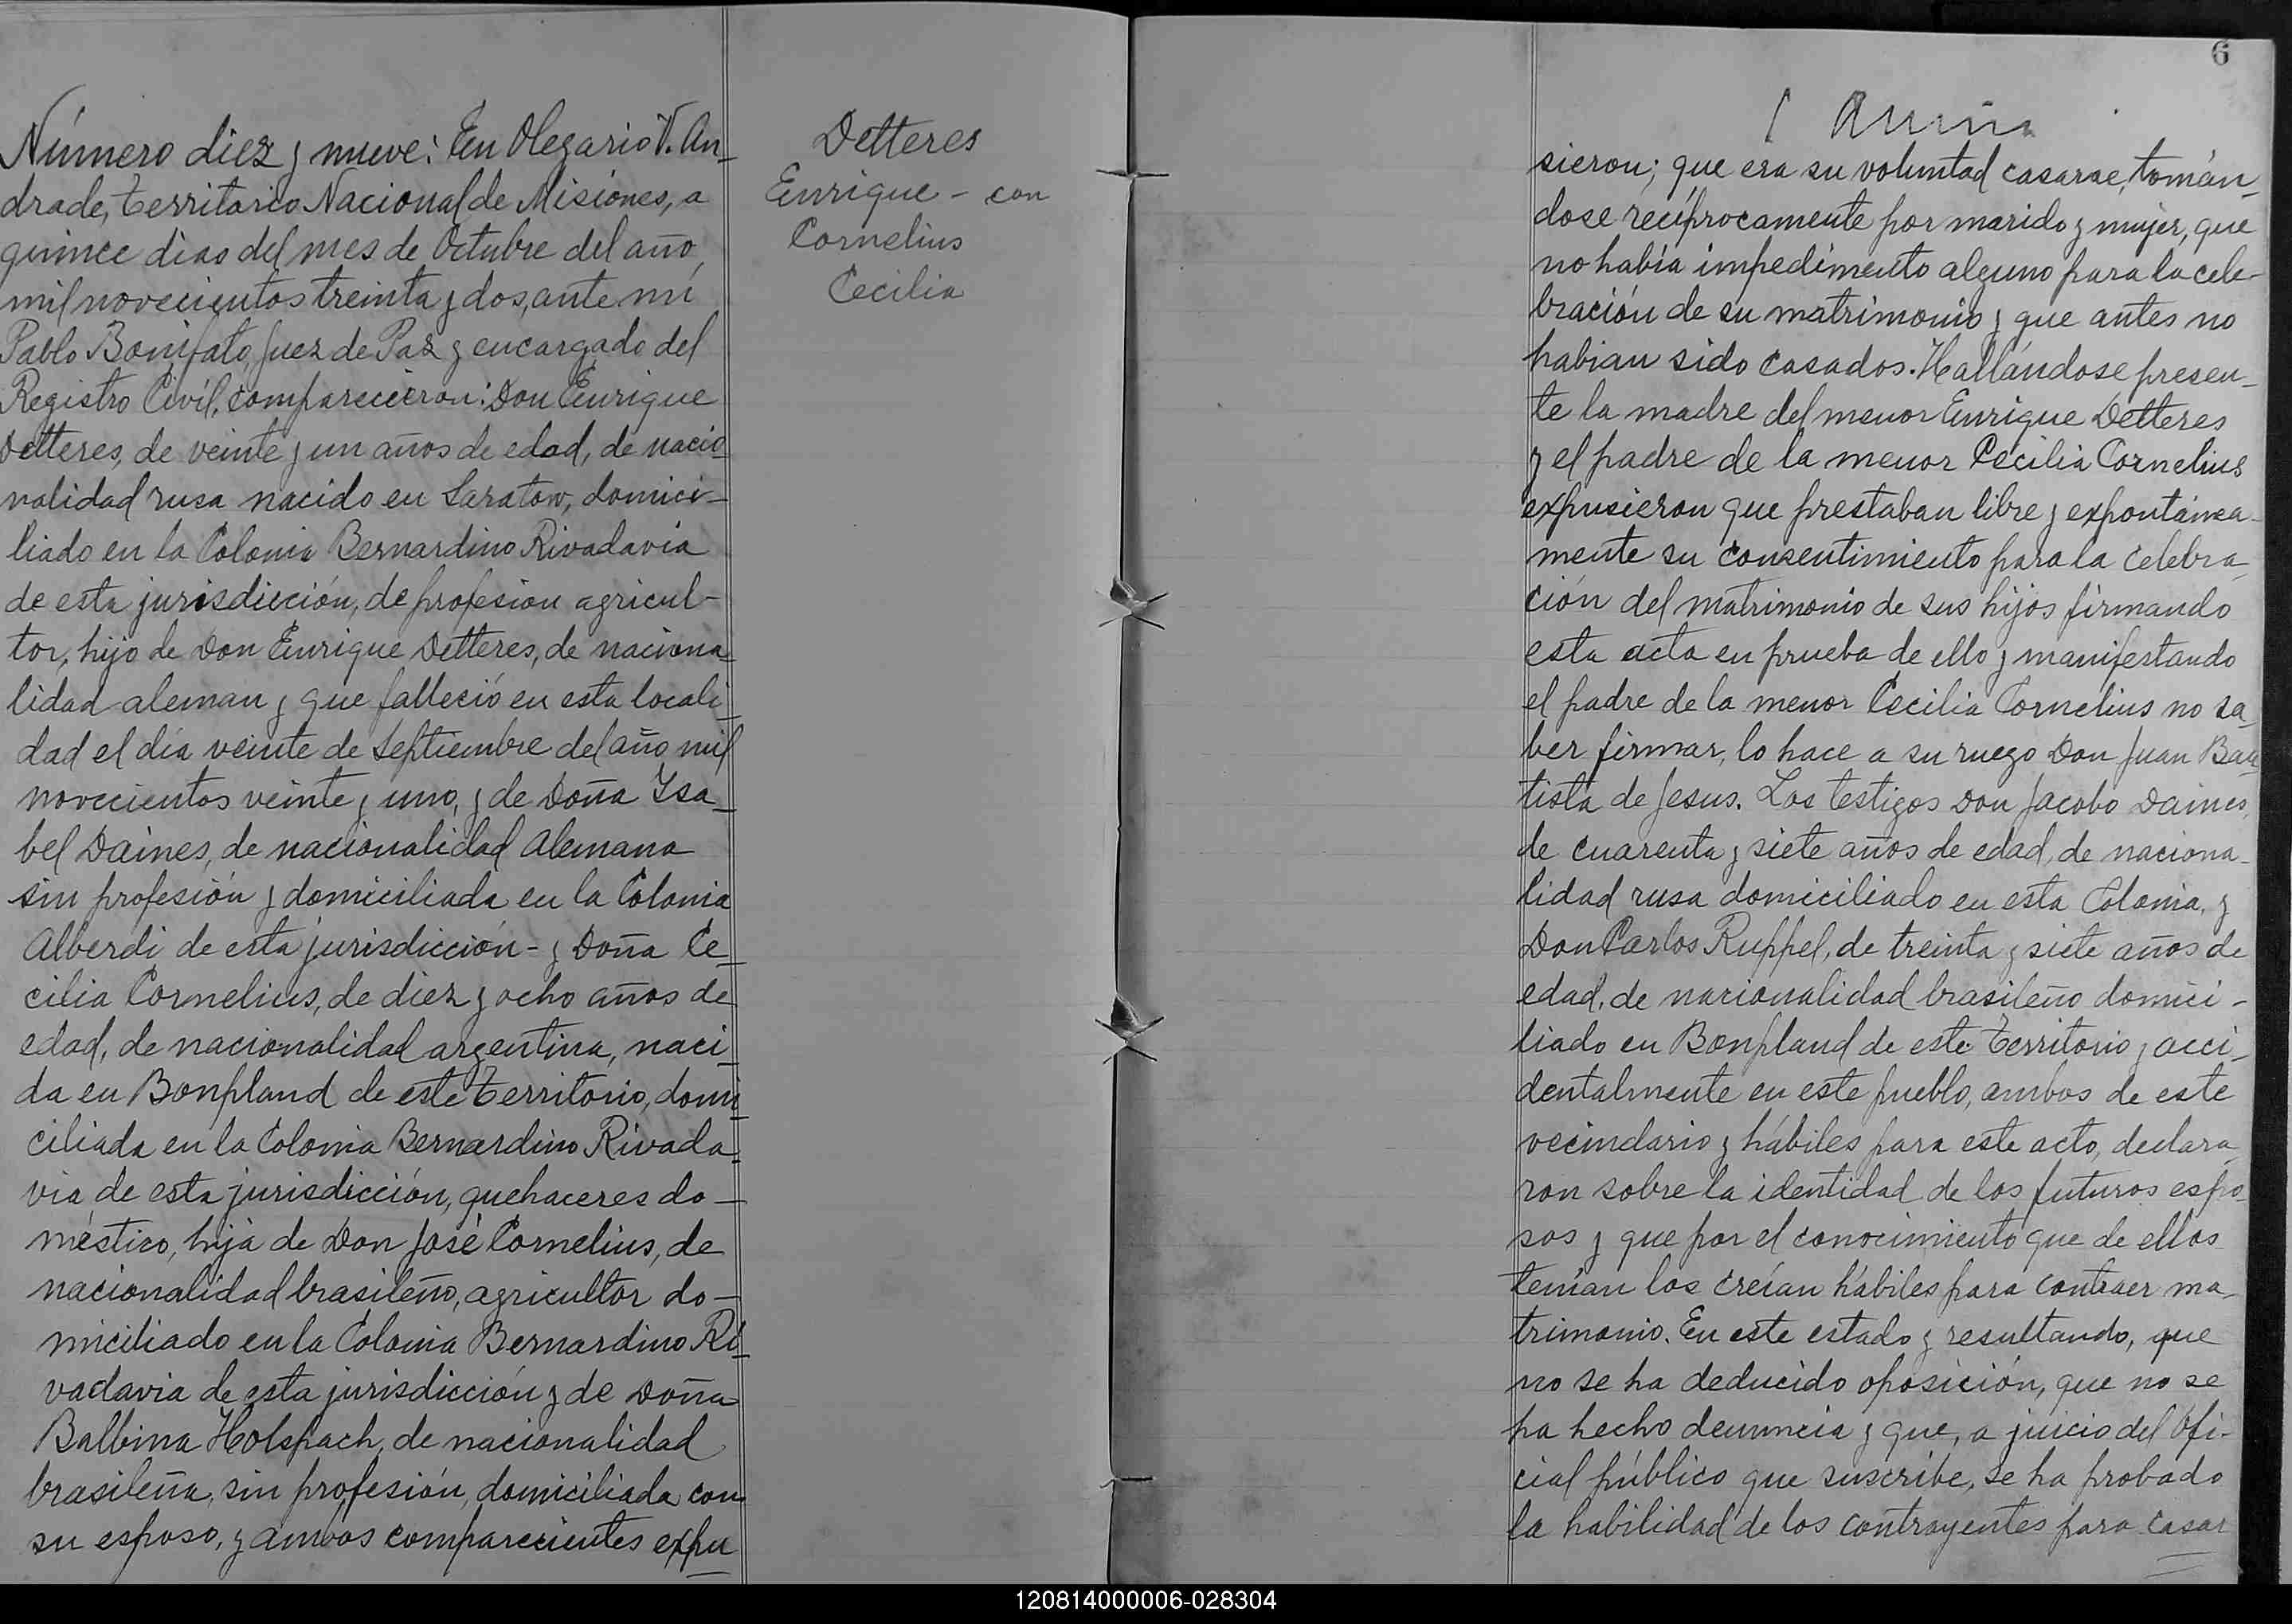 Número diez y nueve: En Olegario V. An-
drade, Territorio Nacional de Misiones, a
quince dias del mes de Octubre del año
mil novecientos treinta y dos, ante mi
Pablo Bonifato, Juez de Paz y encargado del
Registro Civil, comparecieron: Don Enrique
Detteres, de veinte y un años de edad, de nacio-
nalidad rusa nacido en Saratow, domici-
liado en la Colonia Bernardino Rivadavia
de esta jurisdicción, de profesion agricul-
tor, hijo de Don Enrique Detteres, de naciona-
lidad aleman y que falleció en esta locali-
dad el día veinte de Septiembre del año mil
novecientos veinte y uno, y de Doña Ysa-
bel Daines, de nacionalidad Alemana
sin profesión y domiciliada en la Colonia
Alberdi de esta jurisdicción - y Doña Ce-
cilia Cornelius, de diez y ocho años de
edad, de nacionalidad argentina, naci-
da en Bonpland de este Territorio, domi-
ciliada en la Colonia Bernardino Rivada-
via de esta jurisdicción, quehaceres do-
méstico, hija de Don José Cornelius, de
nacionalidad brasileño, agricultor do-
miciliado en la Colonia Bernardino Ri-
vadavia de esta jurisdicción y de Doña
Balbina Holspach, de nacionalidad
brasileña, sin profesión, domiciliada con
su esposo, y ambos comparecientes expu
Detteres
Enrique - con
Cornelius
Cecilia
6
sieron; que era su voluntad casarse, tomán-
dose recíprocamente por marido y mujer, que
no había impedimento alguno para la cele-
bración de su matrimonio y que antes no
habian sido casados. Hallándose presen-
te la madre del menor Enrique Detteres
y el padre de la menor Cecilia Cornelius
expusieron que prestaban libre y expontánea-
mente su consentimiento para la celebra-
ción del matrimonio de sus hijos firmando
esta acta en prueba de ello y manifestando
el padre de la menor Cecilia Cornelius no sa-
ber firmar, lo hace a su ruego Don Juan Bau
tista de Jesus. Los testigos Don Jacobo Daines,
de cuarenta y siete años de edad, de naciona-
lidad rusa domiciliado en esta Colonia, y
Don Carlos Ruppel, de treinta y siete años de
edad, de nacionalidad brasileño domici-
liado en Bonpland de este Territorio y acci-
dentalmente en este pueblo, ambos de este
vecindario y hábiles para este acto, declara-
ron sobre la identidad de los futuros espo-
sos y que por el conocimiento que de ellos
tenían los creían hábiles para contraer ma-
trimonio. En este estado y resultando, que
no se ha deducido oposición, que no se
ha hecho denuncia y que, a juicio del Ofi-
cial público que suscribe, se ha probado
la habilidad de los contrayentes para casar
120814000006-028304